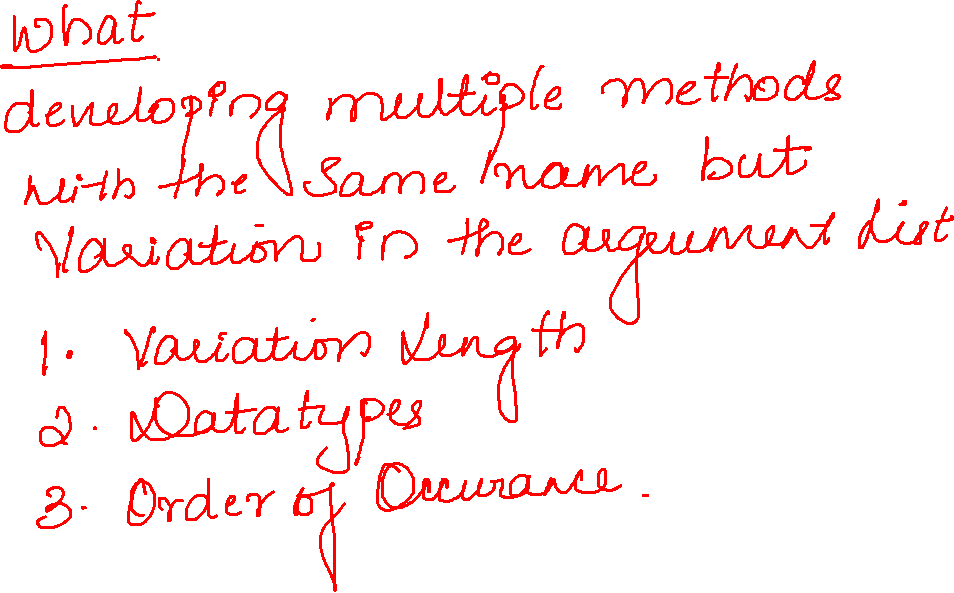 What
developing multiple methods
with the same name but
Variation in the argument list
1. Variation Length
2. Datatypes
3. Order of Occurance.